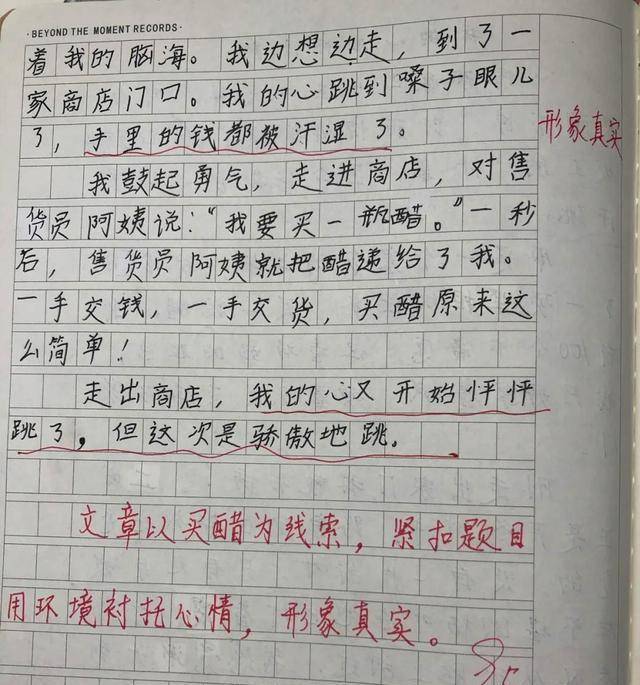 · BEYOND THE MOMENT RECORDS·
着我的脑海。我边想边走，到了一
家商店门口。我的心跳到嗓子眼儿
了，手里的钱都被汗湿了。
形象真实
我鼓起勇气，走进商店，对售
货员阿姨说：“我要买一瓶醋。”一秒
后，售货员阿姨就把醋递给了我。
一手交钱，一手交货，买醋原来这
么简单！
走出商店，我的心又开始怦怦
跳了，但这次是骄傲地跳。
文章以买醋为线索，紧扣题目
用环境衬托心情，形象真实。